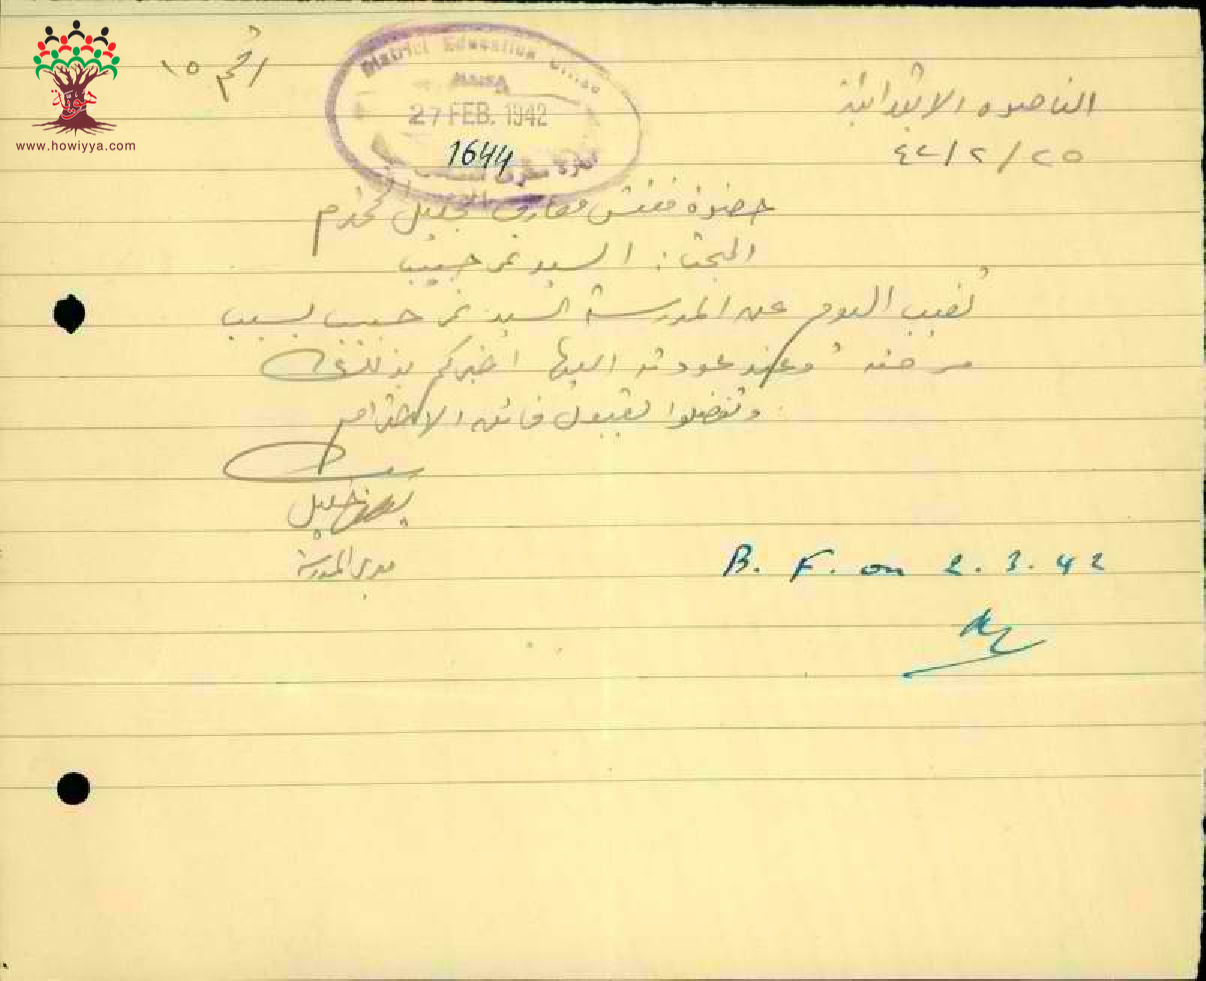 www.howiyya.com
الناصرة الابتدائية
٢٥/٢/٤٢
District Education Office
HAIFA
27 FEB. 1942
1644
حضرة مفتش معارف الجليل المحترم
المبحث: السيد نمر حبيب
تغيب اليوم عن المدرسة السيد نمر حبيب بسبب
مرضه وعند عودته اليها اخبركم بذلك
وتفضلوا بقبول فائق الاحترام
خليل
مدير المدرسة
B. F. on 2.3.42